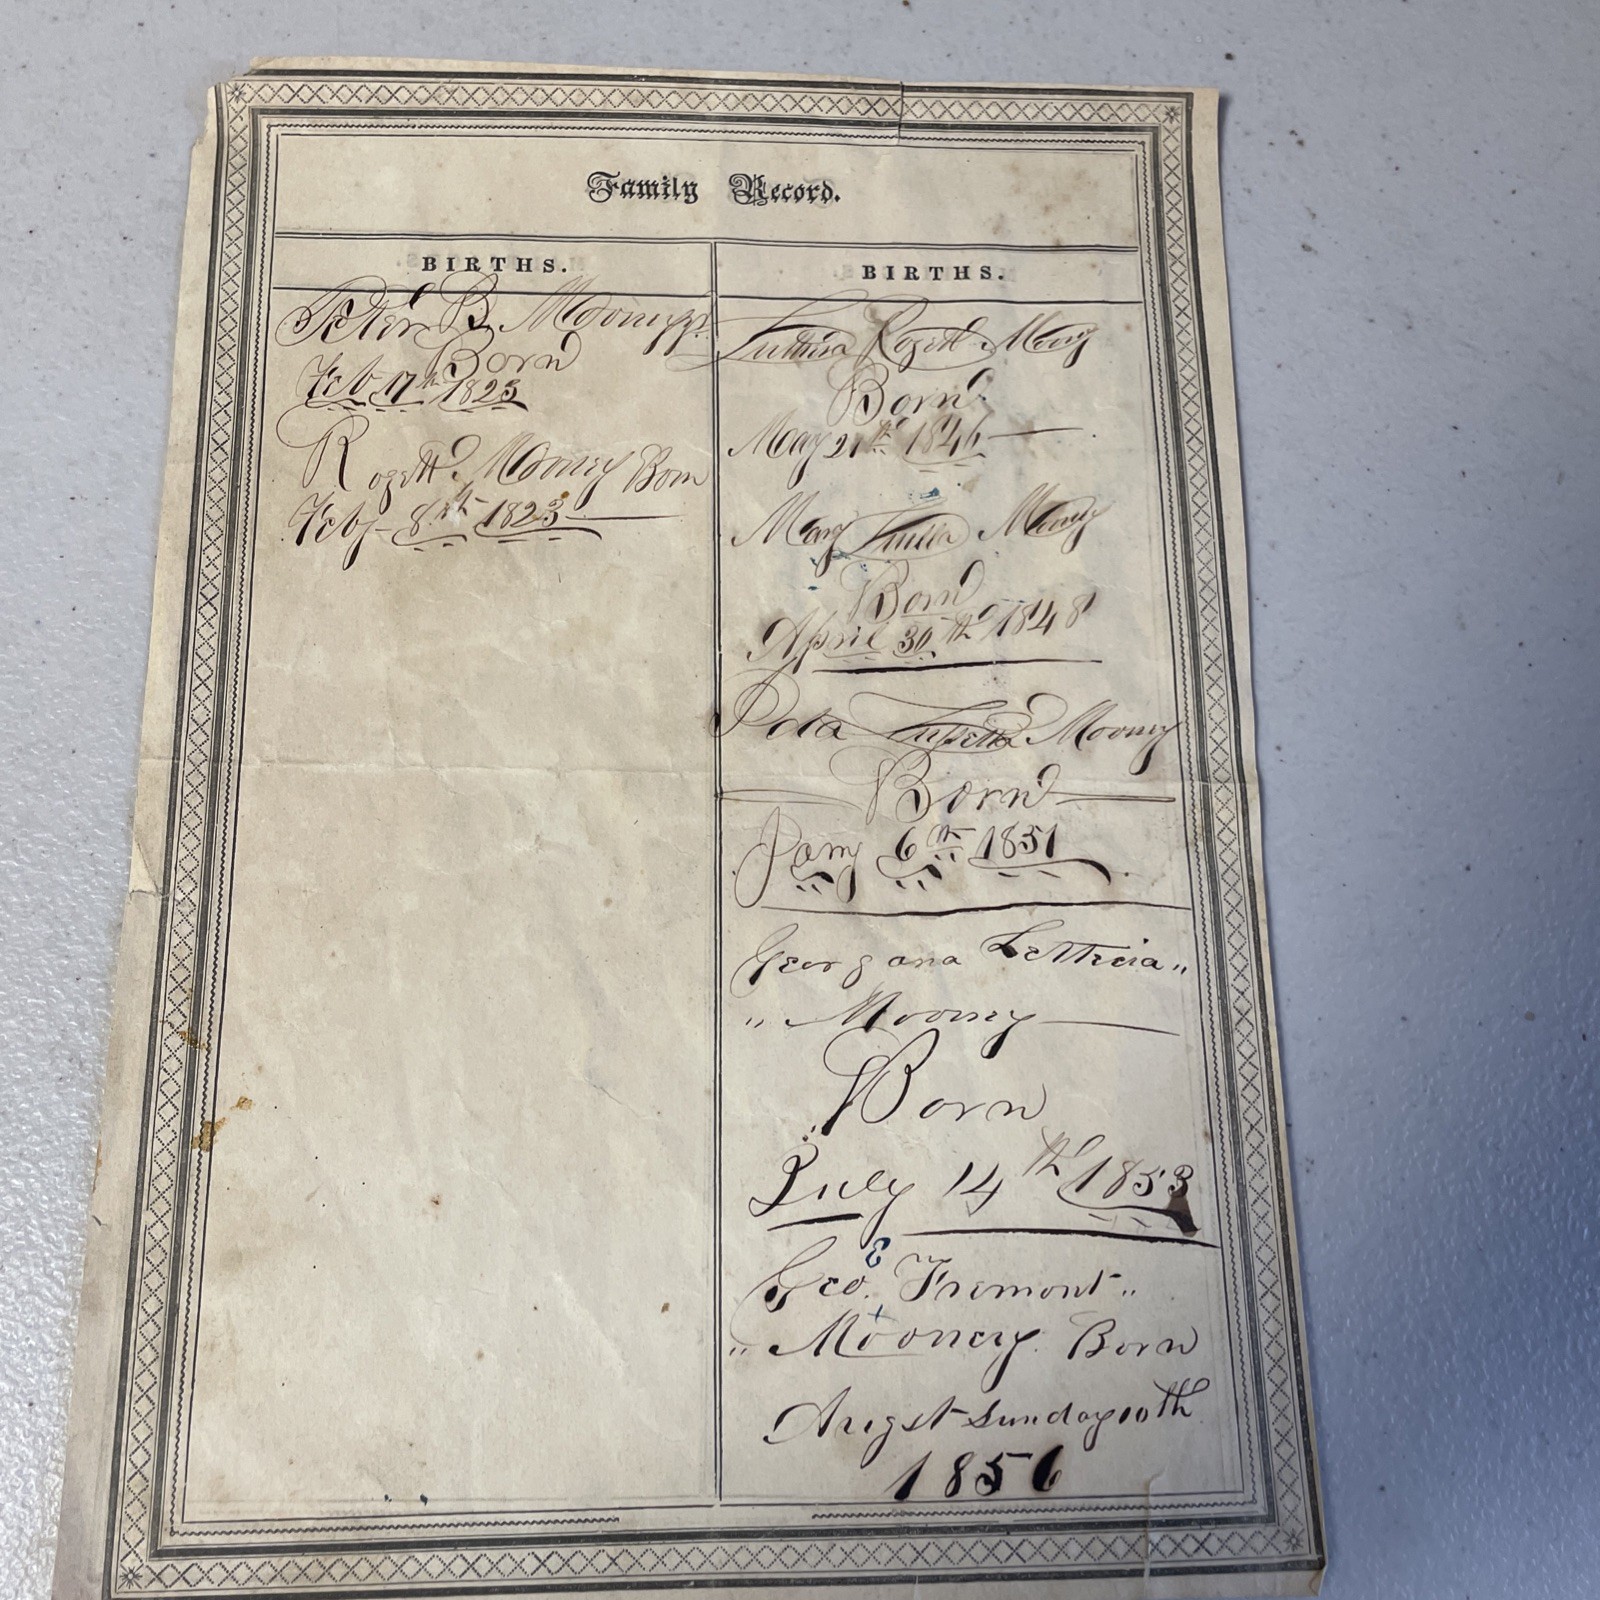 Family Record.
BIRTHS.
Peter B. Mooney
Born
Feb 17th 1823
Rozett Mooney Born
Feby 8th 1823
BIRTHS.
Rozett
Born
May 21th 1846
Mary
Born
April 30th 1848
Mooney
Born
Jany 6th 1851
Georgana Letticia "
" Mooney
Born
July 14th 1853
E
Geo. Fremont "
" Mooney. Born
Augst Sunday 10th
1856